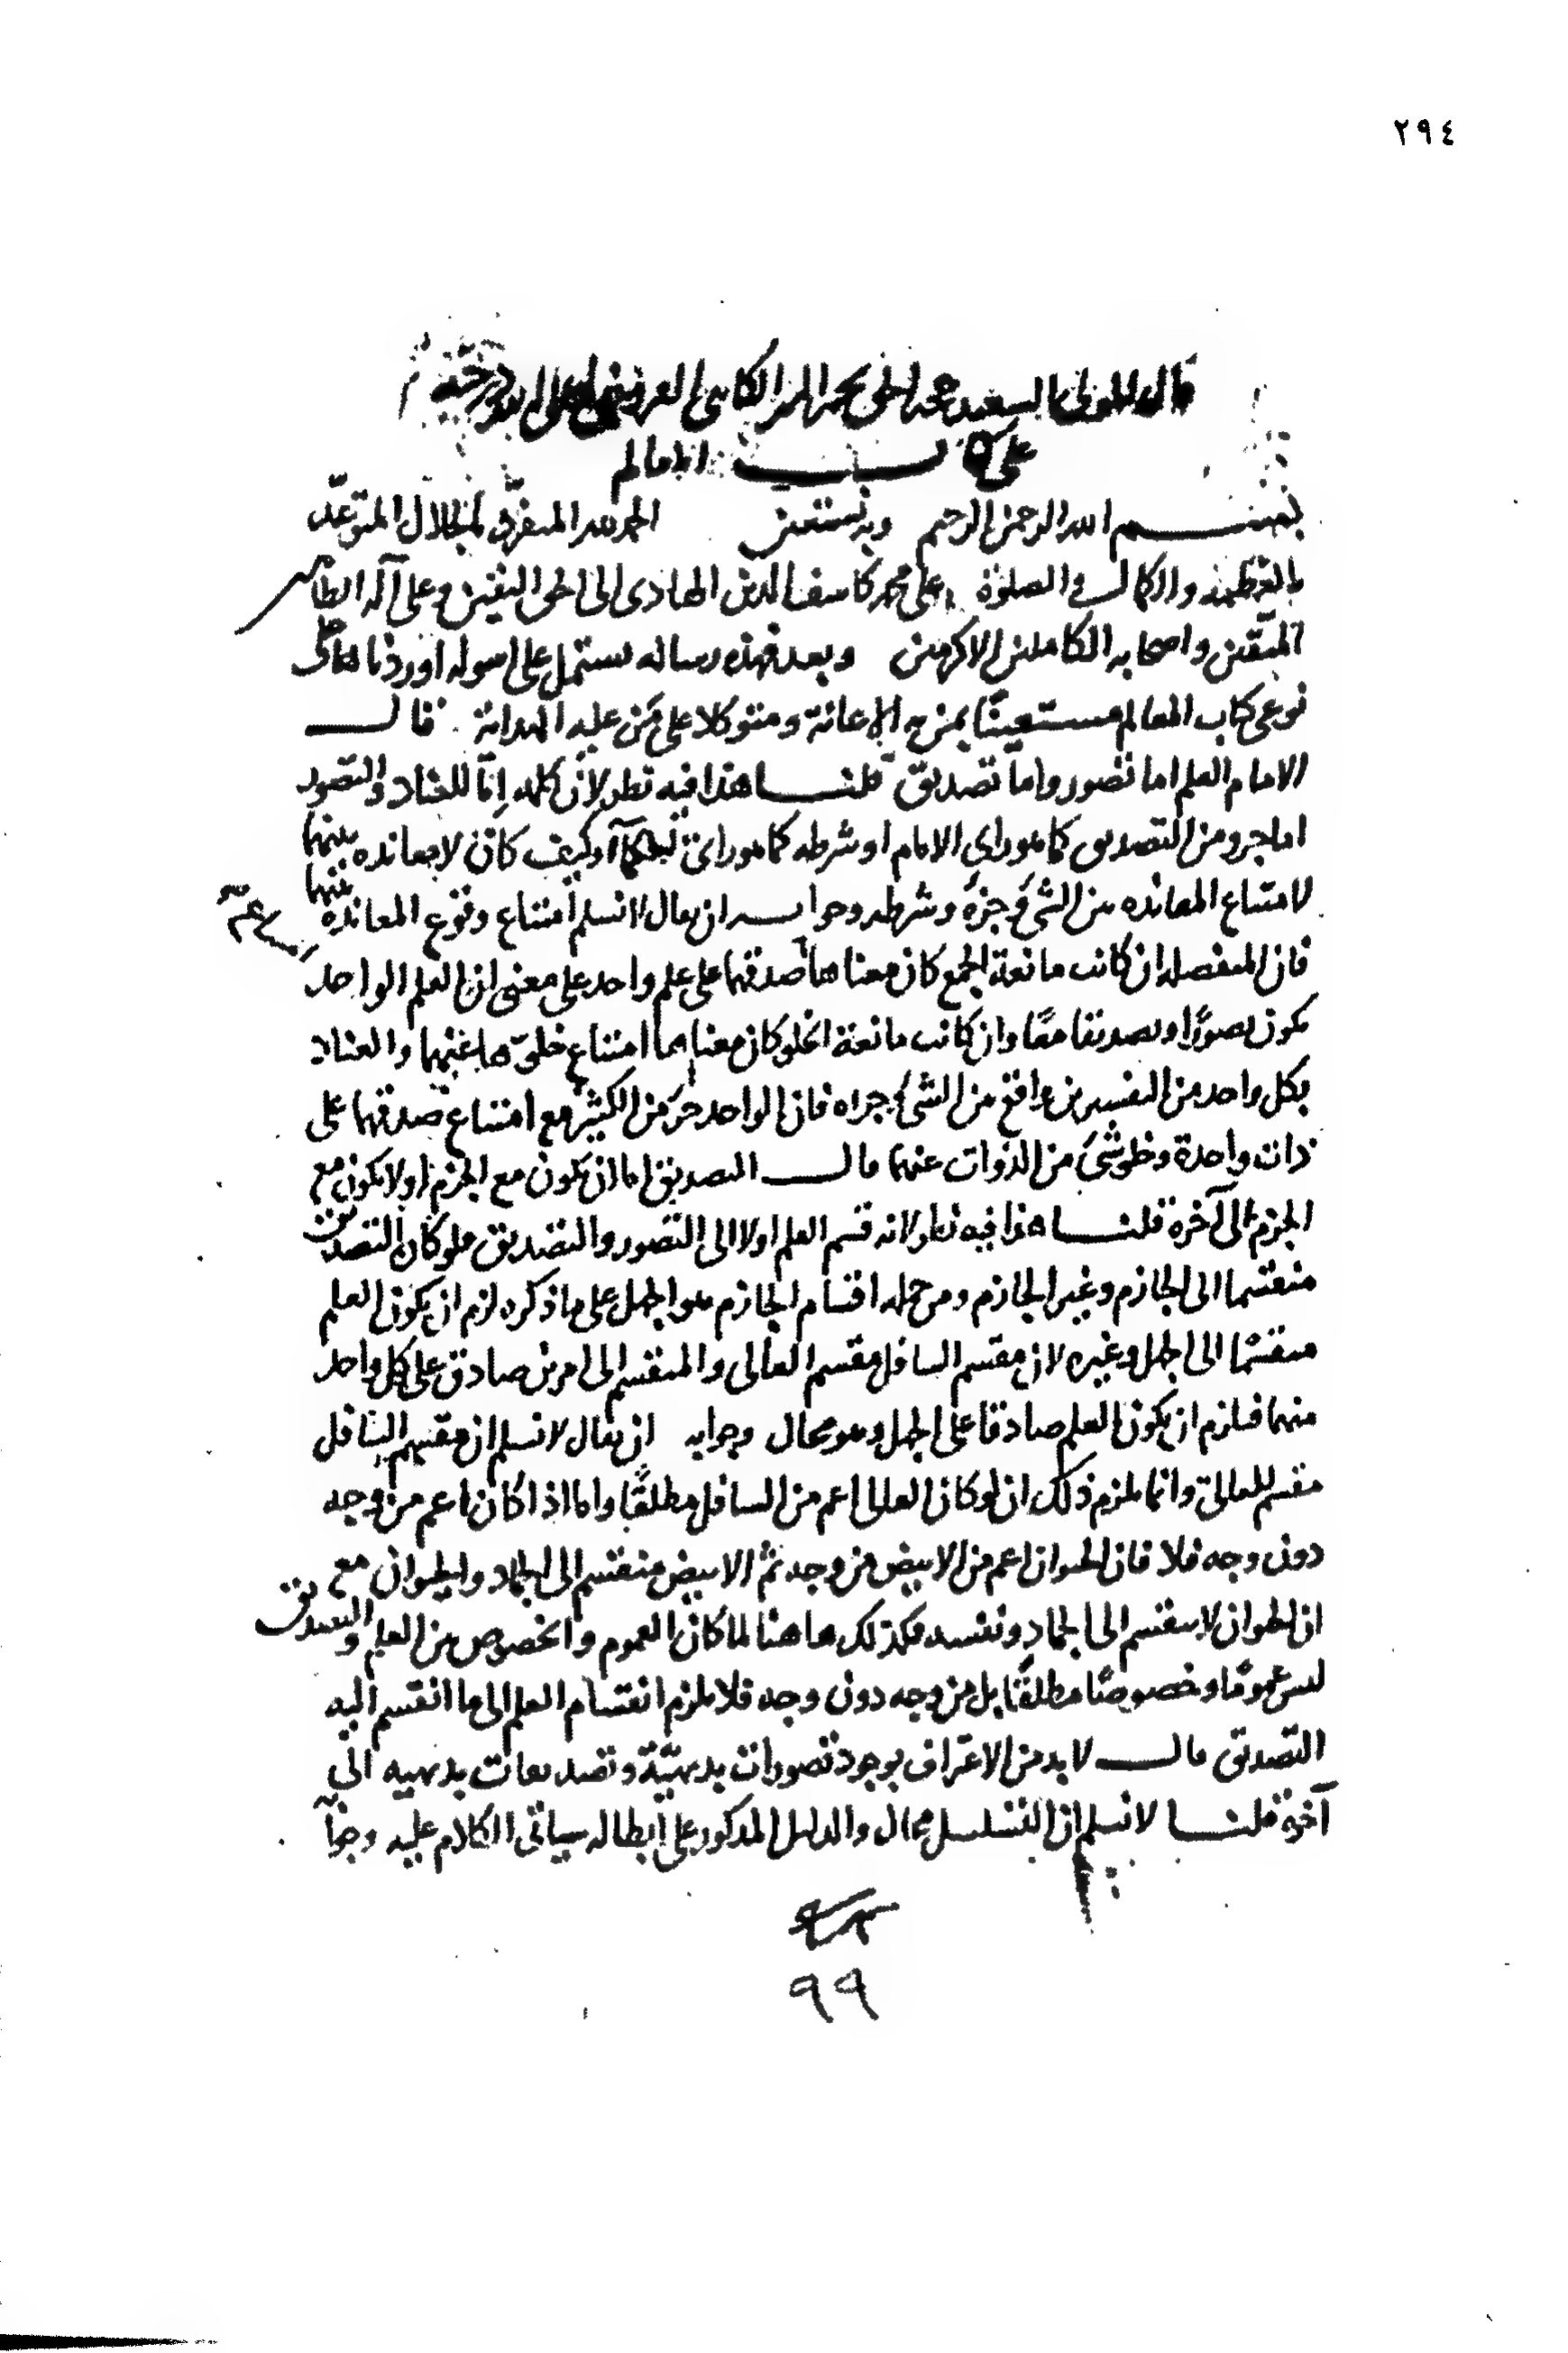 ٢٩٤
قال المولى السعيد حجة الحق نجم الدين الكاتبي القزويني
على كتاب المعالم
بسم الله الرحمن الرحيم وبه نستعين الحمد لله المتفرد بالجلال المتوحد
بالعظمة والكمال والصلوة على محمد كاشف الدين الهادى الى الحق اليقين وعلى آله الطاهرين
المتقين واصحابه الكاملين الاكرمين وبعد فهذه رساله تشتمل على اسوله اوردناها على
نوعى كتاب المعالم مستعينًا بمن به الاعانة ومتوكلا على من عليه الهداية قال
الامام العلم اما تصور واما تصديق قلنا هذا فيه نظر لان كلمه اِمّا للعناد والتصور
اما جزو من التصديق كما هو راى الامام او شرطه كما هو راى الحكمآ وكيف كان لا معانده بينهما
لامتناع المعانده بين الشئ وجزئه وشرطه وجوابه ان يقال لا نسلم امتناع وقوع المعانده بينهما
فان المنفصله ان كانت مانعة الجمع كان معناها صدقهما على علم واحد على معنى ان العلم الواحد
يكون تصورًا وتصديقا معًا وان كانت مانعة الخلو كان معناها امتناع خلوّها عنهما والعناد
بكل واحد من التفسيرين واقع بين الشئ وجزئه فان الواحد جزء من الكثير مع امتناع صدقهما على
ذات واحدة وخلو شئ من الذوات عنهما قال التصديق اما ان يكون مع الجزم او لا يكون مع
الجزم الى آخره قلنا هذا فيه نظر لانه قسم العلم اولا الى التصور والتصديق فلو كان التصديق
منقسما الى الجازم وغير الجازم ومن جمله اقسام الجازم هو الجهل على ما ذكره لزم ان يكون العلم
منقسمًا الى الجهل وغيره لان مقسم السافل مقسم العالى والمنقسم الى امرين صادق على كل واحد
منهما فيلزم ان يكون العلم صادقا على الجهل وهو محال وجوابه ان يقال لا نسلم ان مقسم السافل
مقسم للعالى وانما يلزم ذلك ان لو كان العالى اعم من السافل مطلقًا واما اذا كان اعم من وجه
دون وجه فلا فان الحيوان اعم من الابيض من وجه ثم الابيض منقسم الى الجماد والحيوان مع
ان الحيوان لا ينقسم الى الجماد ونفسه فكذلك هاهنا لما كان العموم والخصوص بين العلم والتصديق
ليس عمومًا وخصوصًا مطلقًا بل من وجه دون وجه فلا يلزم انقسام العلم الى ما انقسم اليه
التصديق قال لا بد من الاعتراف بوجود تصورات بديهيّة وتصديقات بديهيه الى
آخره قلنا لا نسلم ان التسلسل محال والدليل المذكور على ابطاله سياتى الكلام عليه وجوابه
٩٩